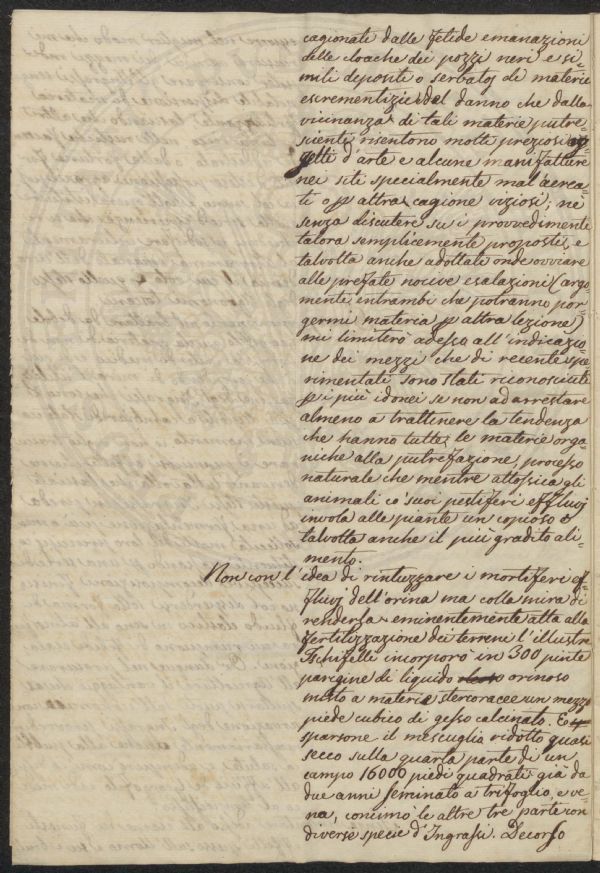 cagionate dalle fetide emanazioni
delle cloache dei pozzi neri e si-
mili depositi o serbatoj di materie
escrementizie; del danno che dalla
vicinanza di tali materie putre-
scienti risentono molti preziosi og-
getti d'arte e alcune manifatture
nei siti specialmente mal'aerea-
ti o p altra cagione viziosi; nè
senza discutere su i provvedimenti
talora semplicemente proposti, e
talvolta anche adottati onde ovviare
alle prefate nocive esalazioni (argo-
menti entrambi che potranno por-
germi materia p altra lezione)
mi limiterò adesso all'indicazio-
ne dei mezzi che di recente spe-
rimentati sono stati riconosciuti
p i più idonei se non ad arrestare
almeno a trattinere la tendenza
che hanno tutte le materie orga-
niche alla putrefazione, processo
naturale che mentre attossica gli
animali co' suoi pestiferi effluvj
invola alle piante un copioso e
talvolta anche il più gradito ali-
mento.
Non con l'idea di rintuzzare i mortiferi ef-
fluvj dell'orina ma colla mira di
renderla eminentemente atta alla
fertilizzazione dei terreni l'illustre
Tschifelli incorporò in 300 pinte
parigine di liquido orinoso
misto a materie stercoracee un mezzo
piede cubico di gesso calcinato. E
sparsone il mescuglio ridotto quasi
secco sulla quarta parte di un
campo 16000 piedi quadrati già da
due anni seminato a trifoglio, e ve-
na, concimò le altre tre parti con
diverse specie d'Ingrassi. Decorso